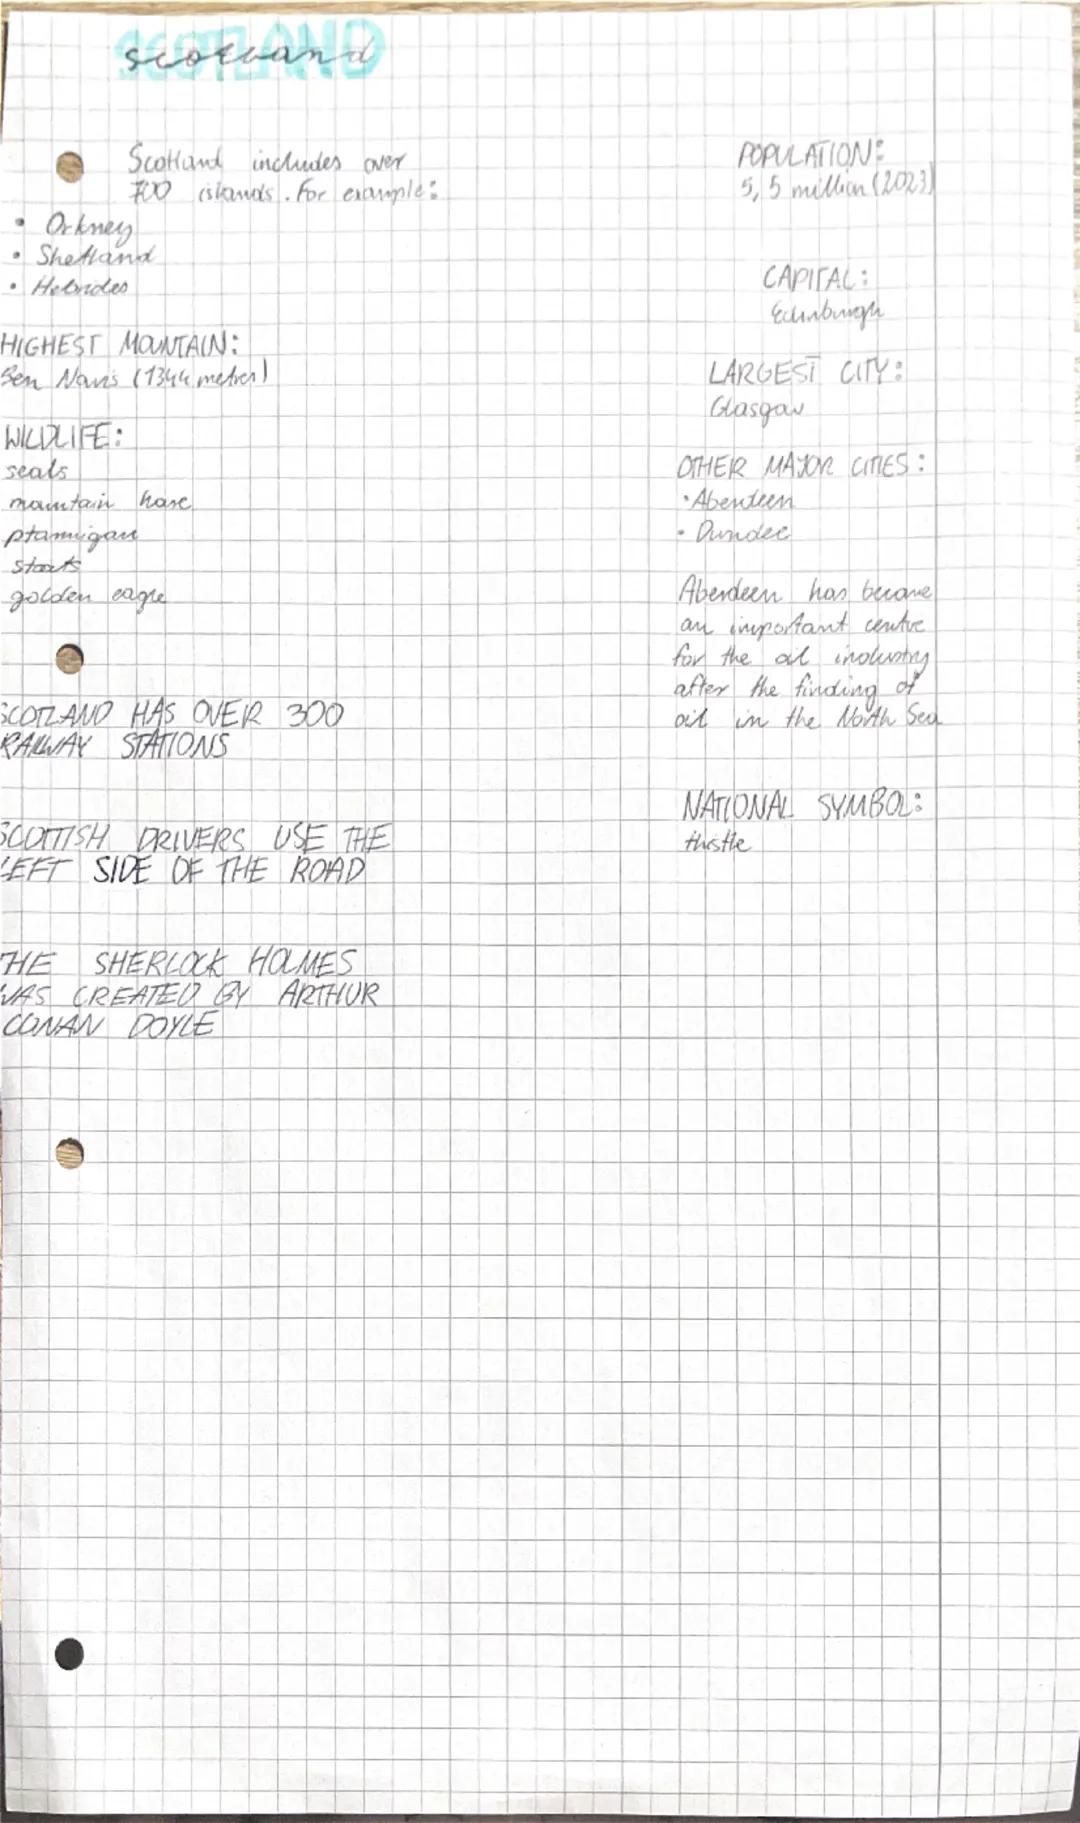 scotland
Scotland includes over
700 islands. For example:
• Orkney
• Shetland
• Hebrides
HIGHEST MOUNTAIN:
Ben Navis (1344 metres)
WILDLIFE:
seals
mountain hare
ptarmigan
stoats
golden eagle
SCOTLAND HAS OVER 300
RAILWAY STATIONS
SCOTTISH DRIVERS USE THE
LEFT SIDE OF THE ROAD
THE SHERLOCK HOLMES
WAS CREATED BY ARTHUR
CONAN DOYLE
POPULATION:
5,5 million (2023)
CAPITAL:
Edinburgh
LARGEST CITY:
Glasgow
OTHER MAJOR CITIES:
• Aberdeen
• Dundee
Aberdeen has become
an important centre
for the oil industry
after the finding of
oil in the North Sea
NATIONAL SYMBOL:
thistle